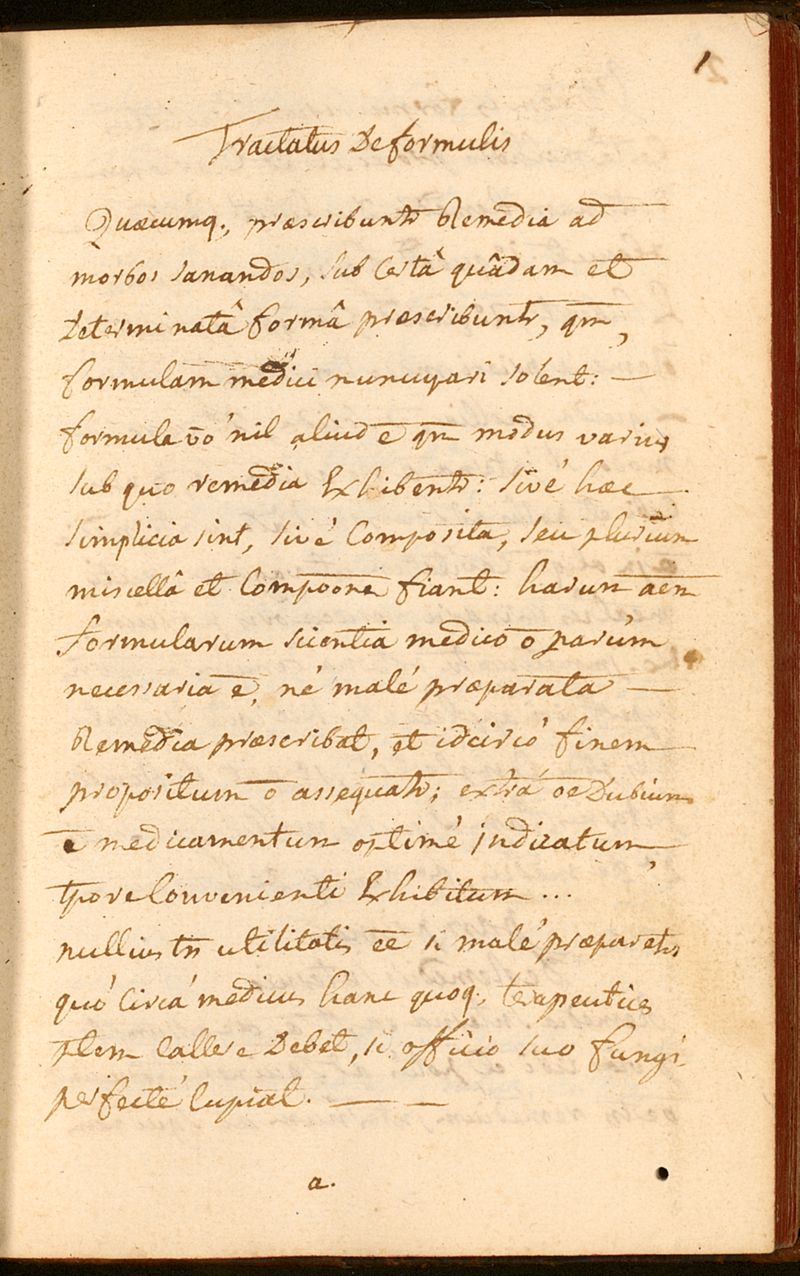 1
Tractatus De formulis
Quæcumq., præscribuntr Remedia ad
morbos sanandos, sub certâ quâdam et
Determinatâ formâ præscribuntr, qm,
formulam medici nuncupari solent: —
formula vo nil aliud e qm modus varius
sub quo remedia Exhibentr: sivé hæc
simplicia sint, sivé Composita, seu plurium
miscellâ et Compoone fiant: harum aem
formularum scientia medico o parum
necessaria e, né malé præparata —
Remedia præscribat, et idcircó finem
propositum o assequatr; extrá oe Dubium
e medicamentum optimé indicatum,
tpore Convenienti Exhibitum ...
nullius tn utilitatis ee si malé præparetr
quó circá medicus hanc quoq. terapeutices
ptem callere Debet, si officio suo fungi
perfecté Cupiat. — —
a.